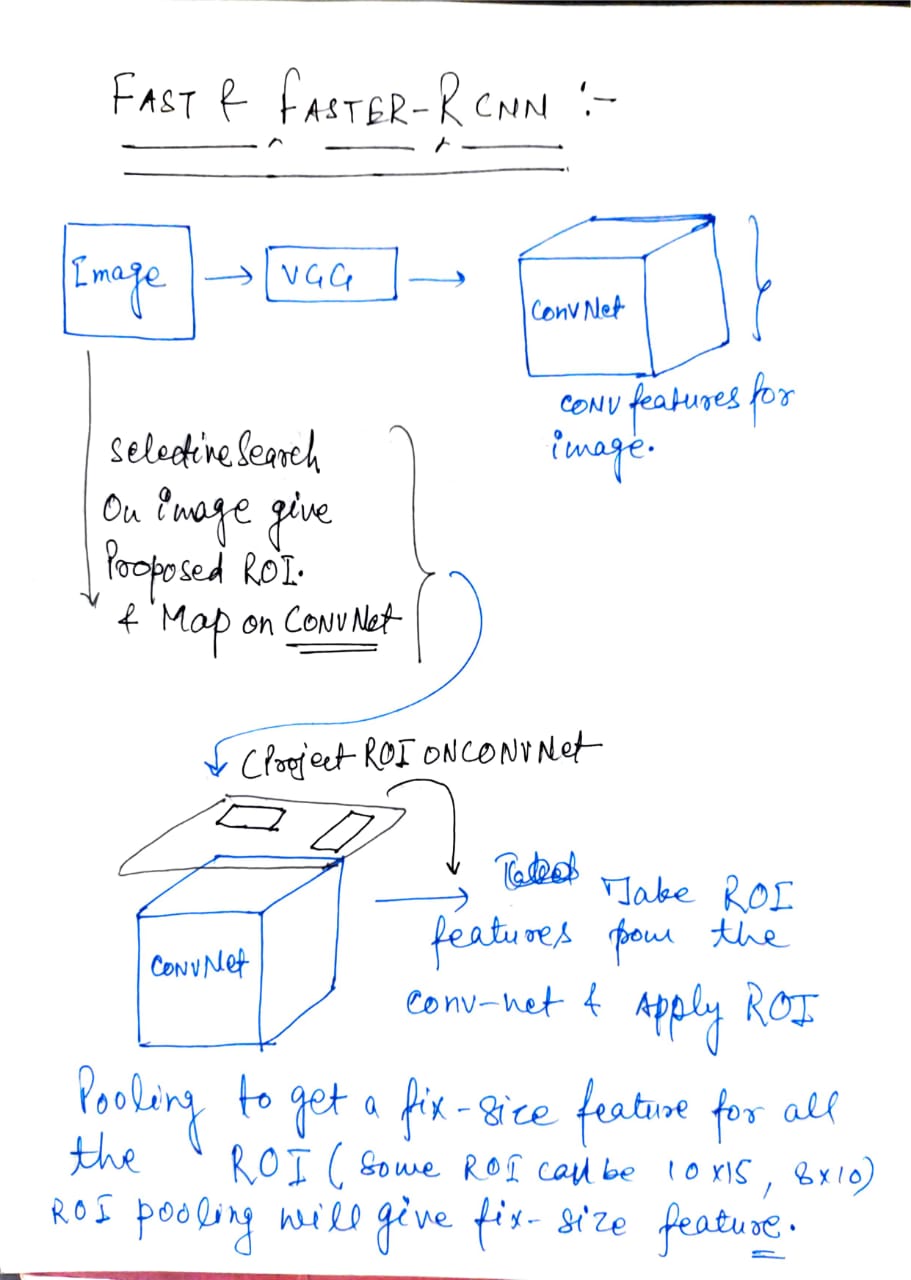 FAST & FASTER-RCNN :-
Image
VGG
ConvNet
CONV features for
image.
selective Search
On image give
Proposed ROI.
& Map on CONVNet
(Project ROI ON CONVNet
CONVNet
Take ROI
features from the
Conv-net & Apply ROI
Pooling to get a fix-size feature for all
the ROI (Some ROI can be 10x15, 8x10)
ROI pooling will give fix-size feature.